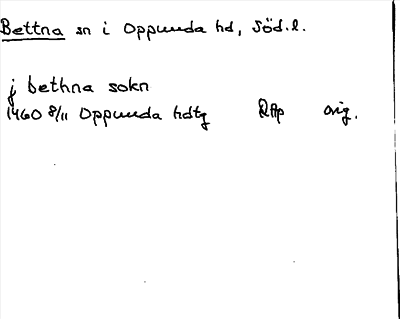 Bettna sn i Oppunda hd, Söd.l.
j bethna sokn
1460 8/11 Oppunda hdtg RAp orig.